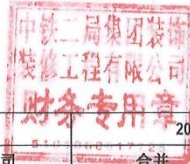 中铁二局集团装饰
装修工程有限公司
财务专用章
20
司
合并